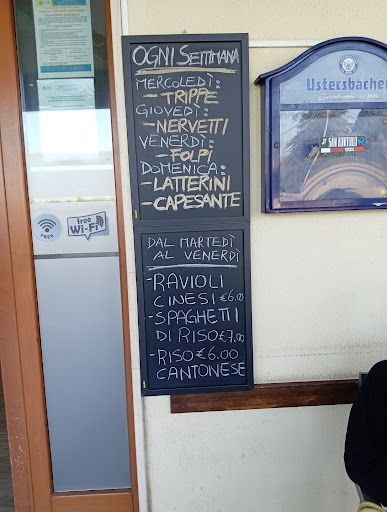 OGNI SETTIMANA
MERCOLEDÌ:
- TRIPPE
GIOVEDÌ:
- NERVETTI
VENERDÌ:
- FOLPI
DOMENICA:
- LATTERINI
- CAPESANTE
DAL MARTEDÌ
AL VENERDÌ
- RAVIOLI
CINESI €6.00
- SPAGHETTI
DI RISO €7.00
- RISO €6.00
CANTONESE
FREE
free
Wi-Fi
Ustersbacher